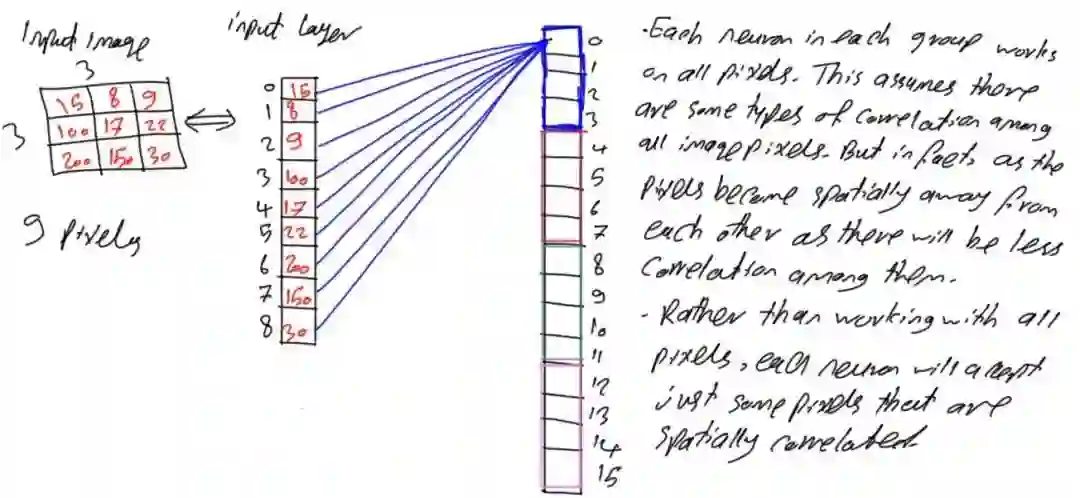 Input image
3
3
15 8 9
100 17 22
200 150 30
9 pixels
input layer
0 15
1 8
2 9
3 100
4 17
5 22
6 200
7 150
8 30
0
1
2
3
4
5
6
7
8
9
10
11
12
13
14
15
- Each neuron in each group works
on all pixels. This assumes there
are some types of correlation among
all image pixels. But in facts as the
pixels become spatially away from
each other as there will be less
correlation among them.
- Rather than working with all
pixels, each neuron will accept
just some pixels that are
spatially correlated